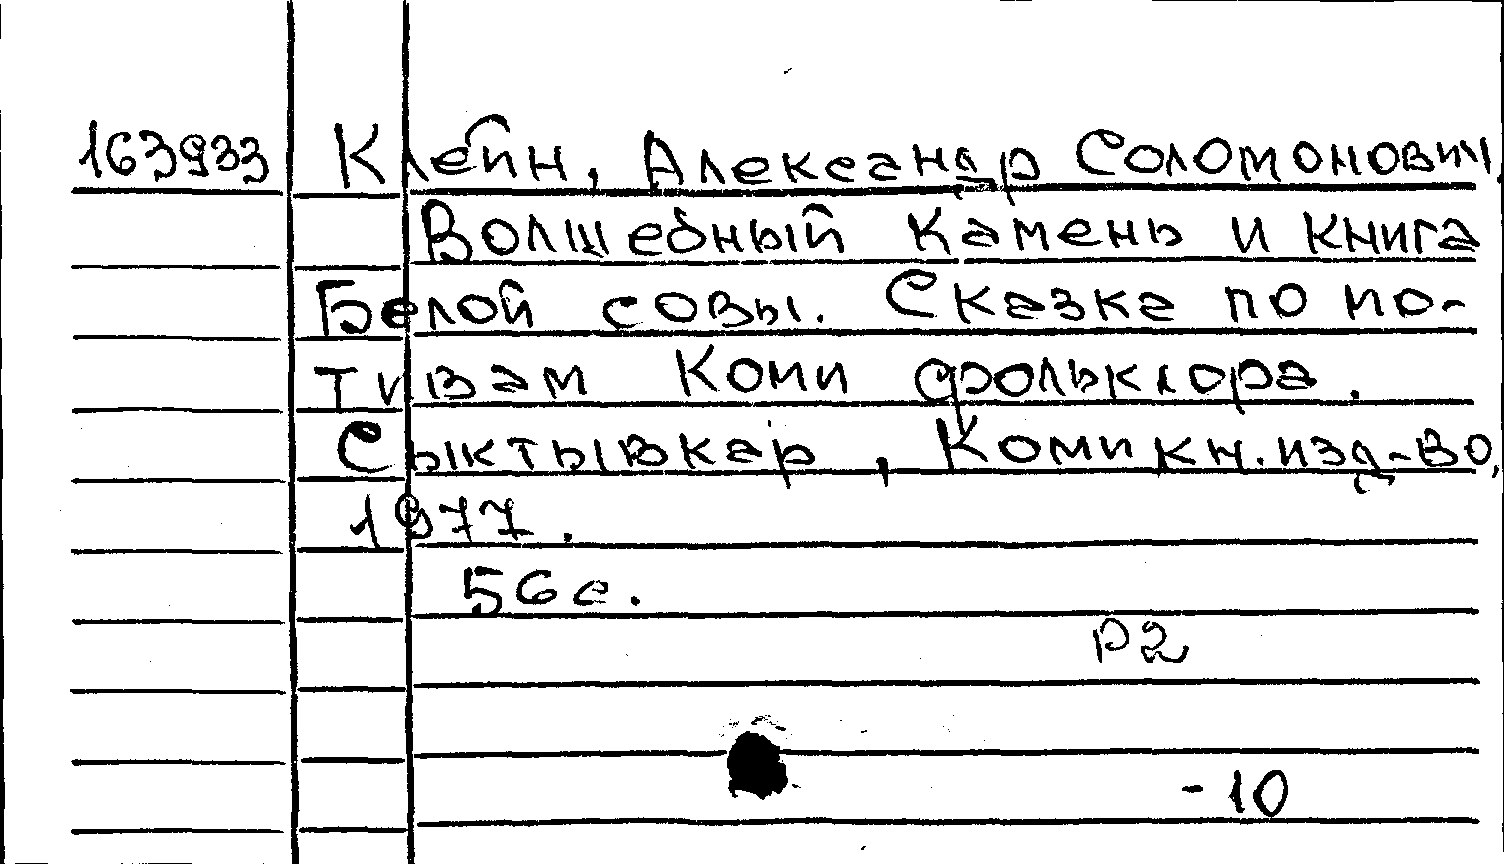 163933 Клейн, Александр Соломонович.
Волшебный камень и книга
Белой совы. Сказка по мо-
тивам Коми фольклора.
Сыктывкар, Коми кн. изд-во,
1977.
56с.
Р2
-10